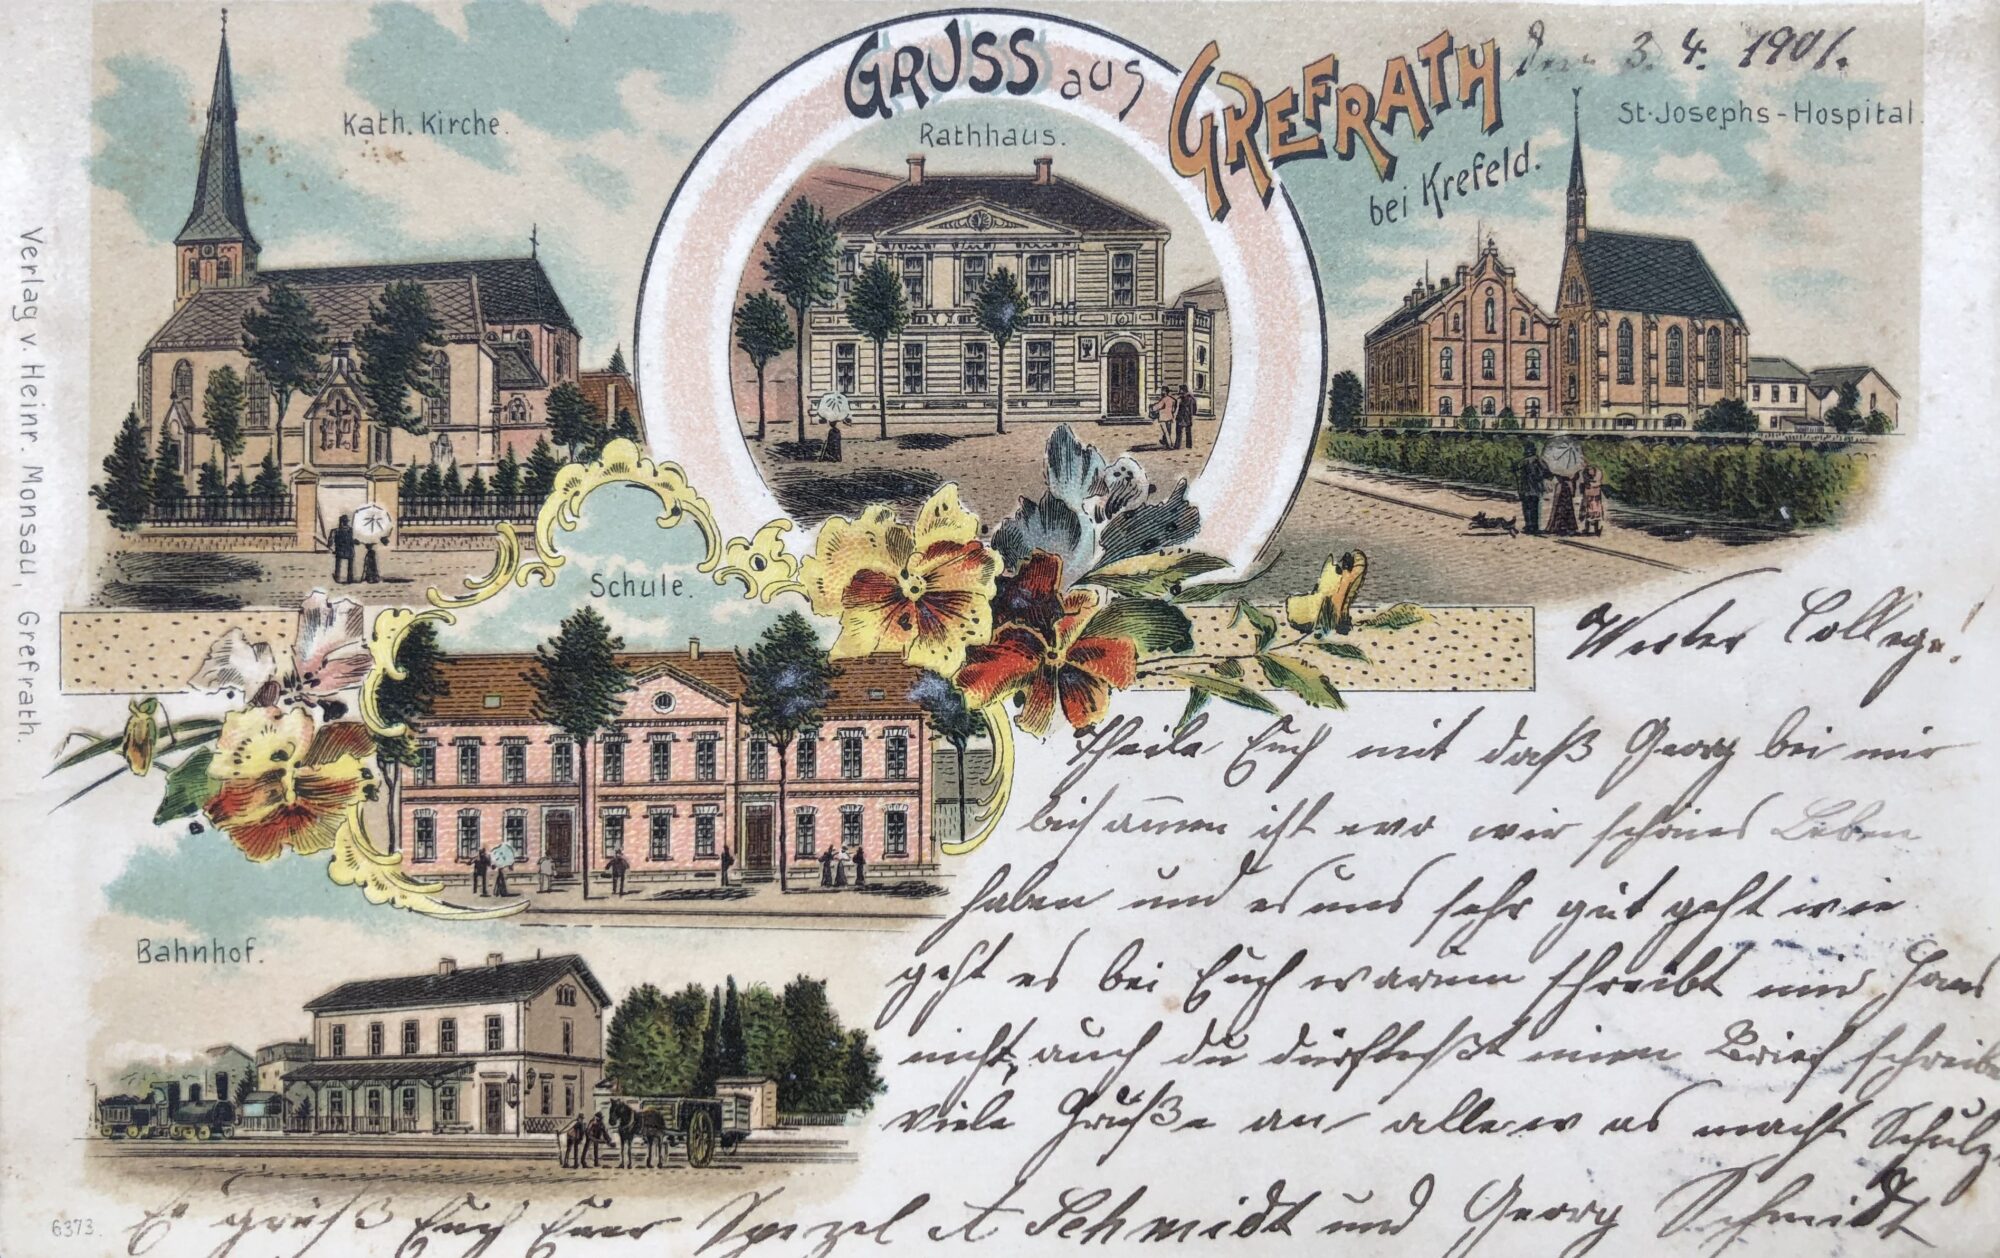 GRUSS aus GREFRATH
bei Krefeld.
den 3. 4. 1901.
Kath. Kirche.
Rathhaus.
St. Josephs-Hospital.
Schule.
Bahnhof.
Verlag v. Heinr. Monsau, Grefrath.
6373.
Werter College!
Theile Euch mit daß Georg bei mir
ist wo wir schönes Leben
haben und es uns sehr gut geht wie
geht es bei Euch warum schreibt mir Hans
nicht, auch du dürftest einen Brief schreiben
viele Grüße an alle was macht Schulz
Es grüßt Euch Euer Spezel A Schmidt und Georg Schmidt